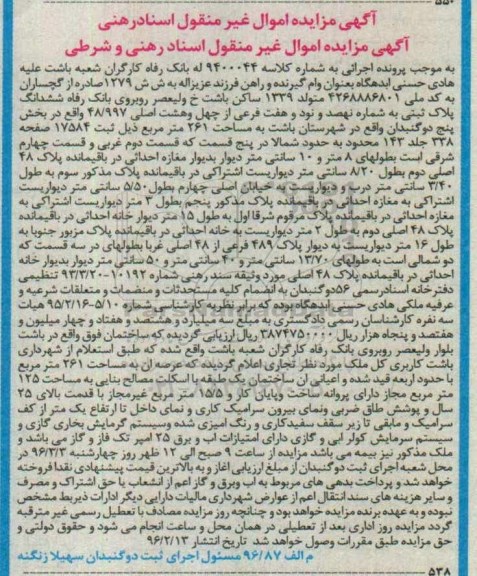 ۵۵۰
آگهی مزایده اموال غیر منقول اسنادرهنی
آگهی مزایده اموال غیر منقول اسناد رهنی و شرطی
به موجب پرونده اجرائی به شماره کلاسه ۹۴۰۰۰۴۴ له بانک رفاه کارگران شعبه باشت علیه
هادی حسنی ابدهگاه بعنوان وام گیرنده و راهن فرزند عزیزاله به ش ش ۱۲۷۹ صادره از گچساران
به کد ملی ۴۲۶۸۸۸۶۸۰۱ متولد ۱۳۳۹ ساکن باشت خ ولیعصر روبروی بانک رفاه ششدانگ
پلاک ثبتی به شماره نهصد و نود و هفت فرعی از چهل وهشت اصلی ۴۸/۹۹۷ واقع در بخش
پنج دوگنبدان واقع در شهرستان باشت به مساحت ۲۶۱ متر مربع ذیل ثبت ۱۷۵۸۴ صفحه
۳۳۸ جلد ۱۴۳ محدود به حدود شمالا در پنج قسمت که قسمت دوم غربی و قسمت چهارم
شرقی است بطولهای ۸ متر و ۱۰ سانتی متر دیوار بدیوار مغازه احداثی در باقیمانده پلاک ۴۸
اصلی دوم بطول ۸/۲۰ سانتی متر دیواریست اشتراکی در باقیمانده پلاک مذکور سوم به طول
۳/۴۰ سانتی متر درب و دیواریست به خیابان اصلی چهارم بطول ۵/۵۰ سانتی متر دیواریست
اشتراکی به مغازه احداثی در باقیمانده پلاک مذکور پنجم بطول ۳ متر دیواریست اشتراکی به
مغازه احداثی در باقیمانده پلاک مرقوم شرقا اول به طول ۱۵ متر دیوار خانه احداثی در باقیمانده
پلاک ۴۸ اصلی دوم به طول ۲ متر دیواریست به خانه احداثی در باقیمانده پلاک مزبور جنوبا به
طول ۱۶ متر دیواریست به دیوار پلاک ۴۸۹ فرعی از ۴۸ اصلی غربا بطولهای در سه قسمت که
دو شمالی است به طولهای ۱۳/۷۰ سانتی متر و ۴۰ سانتی متر و ۵۰ سانتی متر دیوار بدیوار خانه
احداثی در باقیمانده پلاک ۴۸ اصلی مورد وثیقه سند رهنی شماره ۱۰۱۹۲-۹۳/۳/۲۰ تنظیمی
دفترخانه اسنادرسمی ۵۶ دوگنبدان به انضمام کلیه مستحدثات و منضمات و متعلقات شرعیه و
عرفیه ملکی هادی حسنی ابدهگاه بوده که برابر نظریه کارشناسی شماره ۵/۱۰-۹۵/۲/۱۶ هیات
سه نفره کارشناسان رسمی دادگستری به مبلغ سه میلیارد و هشتصد و هفتاد و چهار میلیون و
هفتصد و پنجاه هزار ریال ۳۸۷۴۷۵۰۰۰۰ ریال ارزیابی گردیده که ساختمان فوق واقع در باشت
بلوار ولیعصر روبروی بانک رفاه کارگران شعبه باشت واقع شده که طبق استعلام از شهرداری
باشت کاربری کل ملک مورد نظر تجاری اعلام گردیده که عرصه ان به مساحت ۲۶۱ متر مربع
با حدود اربعه قید شده و اعیانی ان ساختمان یک طبقه با اسکلت مصالح بنایی به مساحت ۱۲۵
متر مربع مجاز دارای پروانه ساخت وپایان کار و ۱۵/۵ متر مربع غیرمجاز با قدمت بالای ۲۵
سال و پوشش طاق ضربی ونمای بیرون سرامیک کاری و نمای داخل تا ارتفاع یک متر از کف
سرامیک و مابقی تا زیر سقف سفیدکاری و رنگ امیزی شده وسیستم گرمایش بخاری گازی و
سیستم سرمایش کولر ابی و گازی دارای امتیازات اب و برق ۲۵ امپر تک فاز و گاز می باشد و
ملک مذکور نیز بیمه می باشد مزایده از ساعت ۹ صبح الی ۱۲ ظهر روز چهارشنبه ۹۶/۳/۳ در
محل شعبه اجرای ثبت دوگنبدان از مبلغ ارزیابی اغاز و به بالاترین قیمت پیشنهادی نقدا فروخته
خواهد شد و پرداخت بدهی های مربوط به اب وبرق و گاز اعم از انشعاب یا حق اشتراک و مصرف
و سایر هزینه های سند انتقال اعم از عوارض شهرداری مالیات دارایی دیگر ادارات ذیربط مشخص
نبوده و به عهده برنده مزایده خواهد بود و چنانچه روز مزایده مصادف با تعطیل رسمی غیر مترقبه
گردد مزایده روز اداری بعد از تعطیلی در همان محل و ساعت انجام می شود و حقوق دولتی و
حق مزایده طبق مقررات وصول خواهد شد تاریخ انتشار ۹۶/۲/۱۳
م الف ۹۶/۸۷ مسئول اجرای ثبت دوگنبدان سهیلا زنگنه
۵۳۸